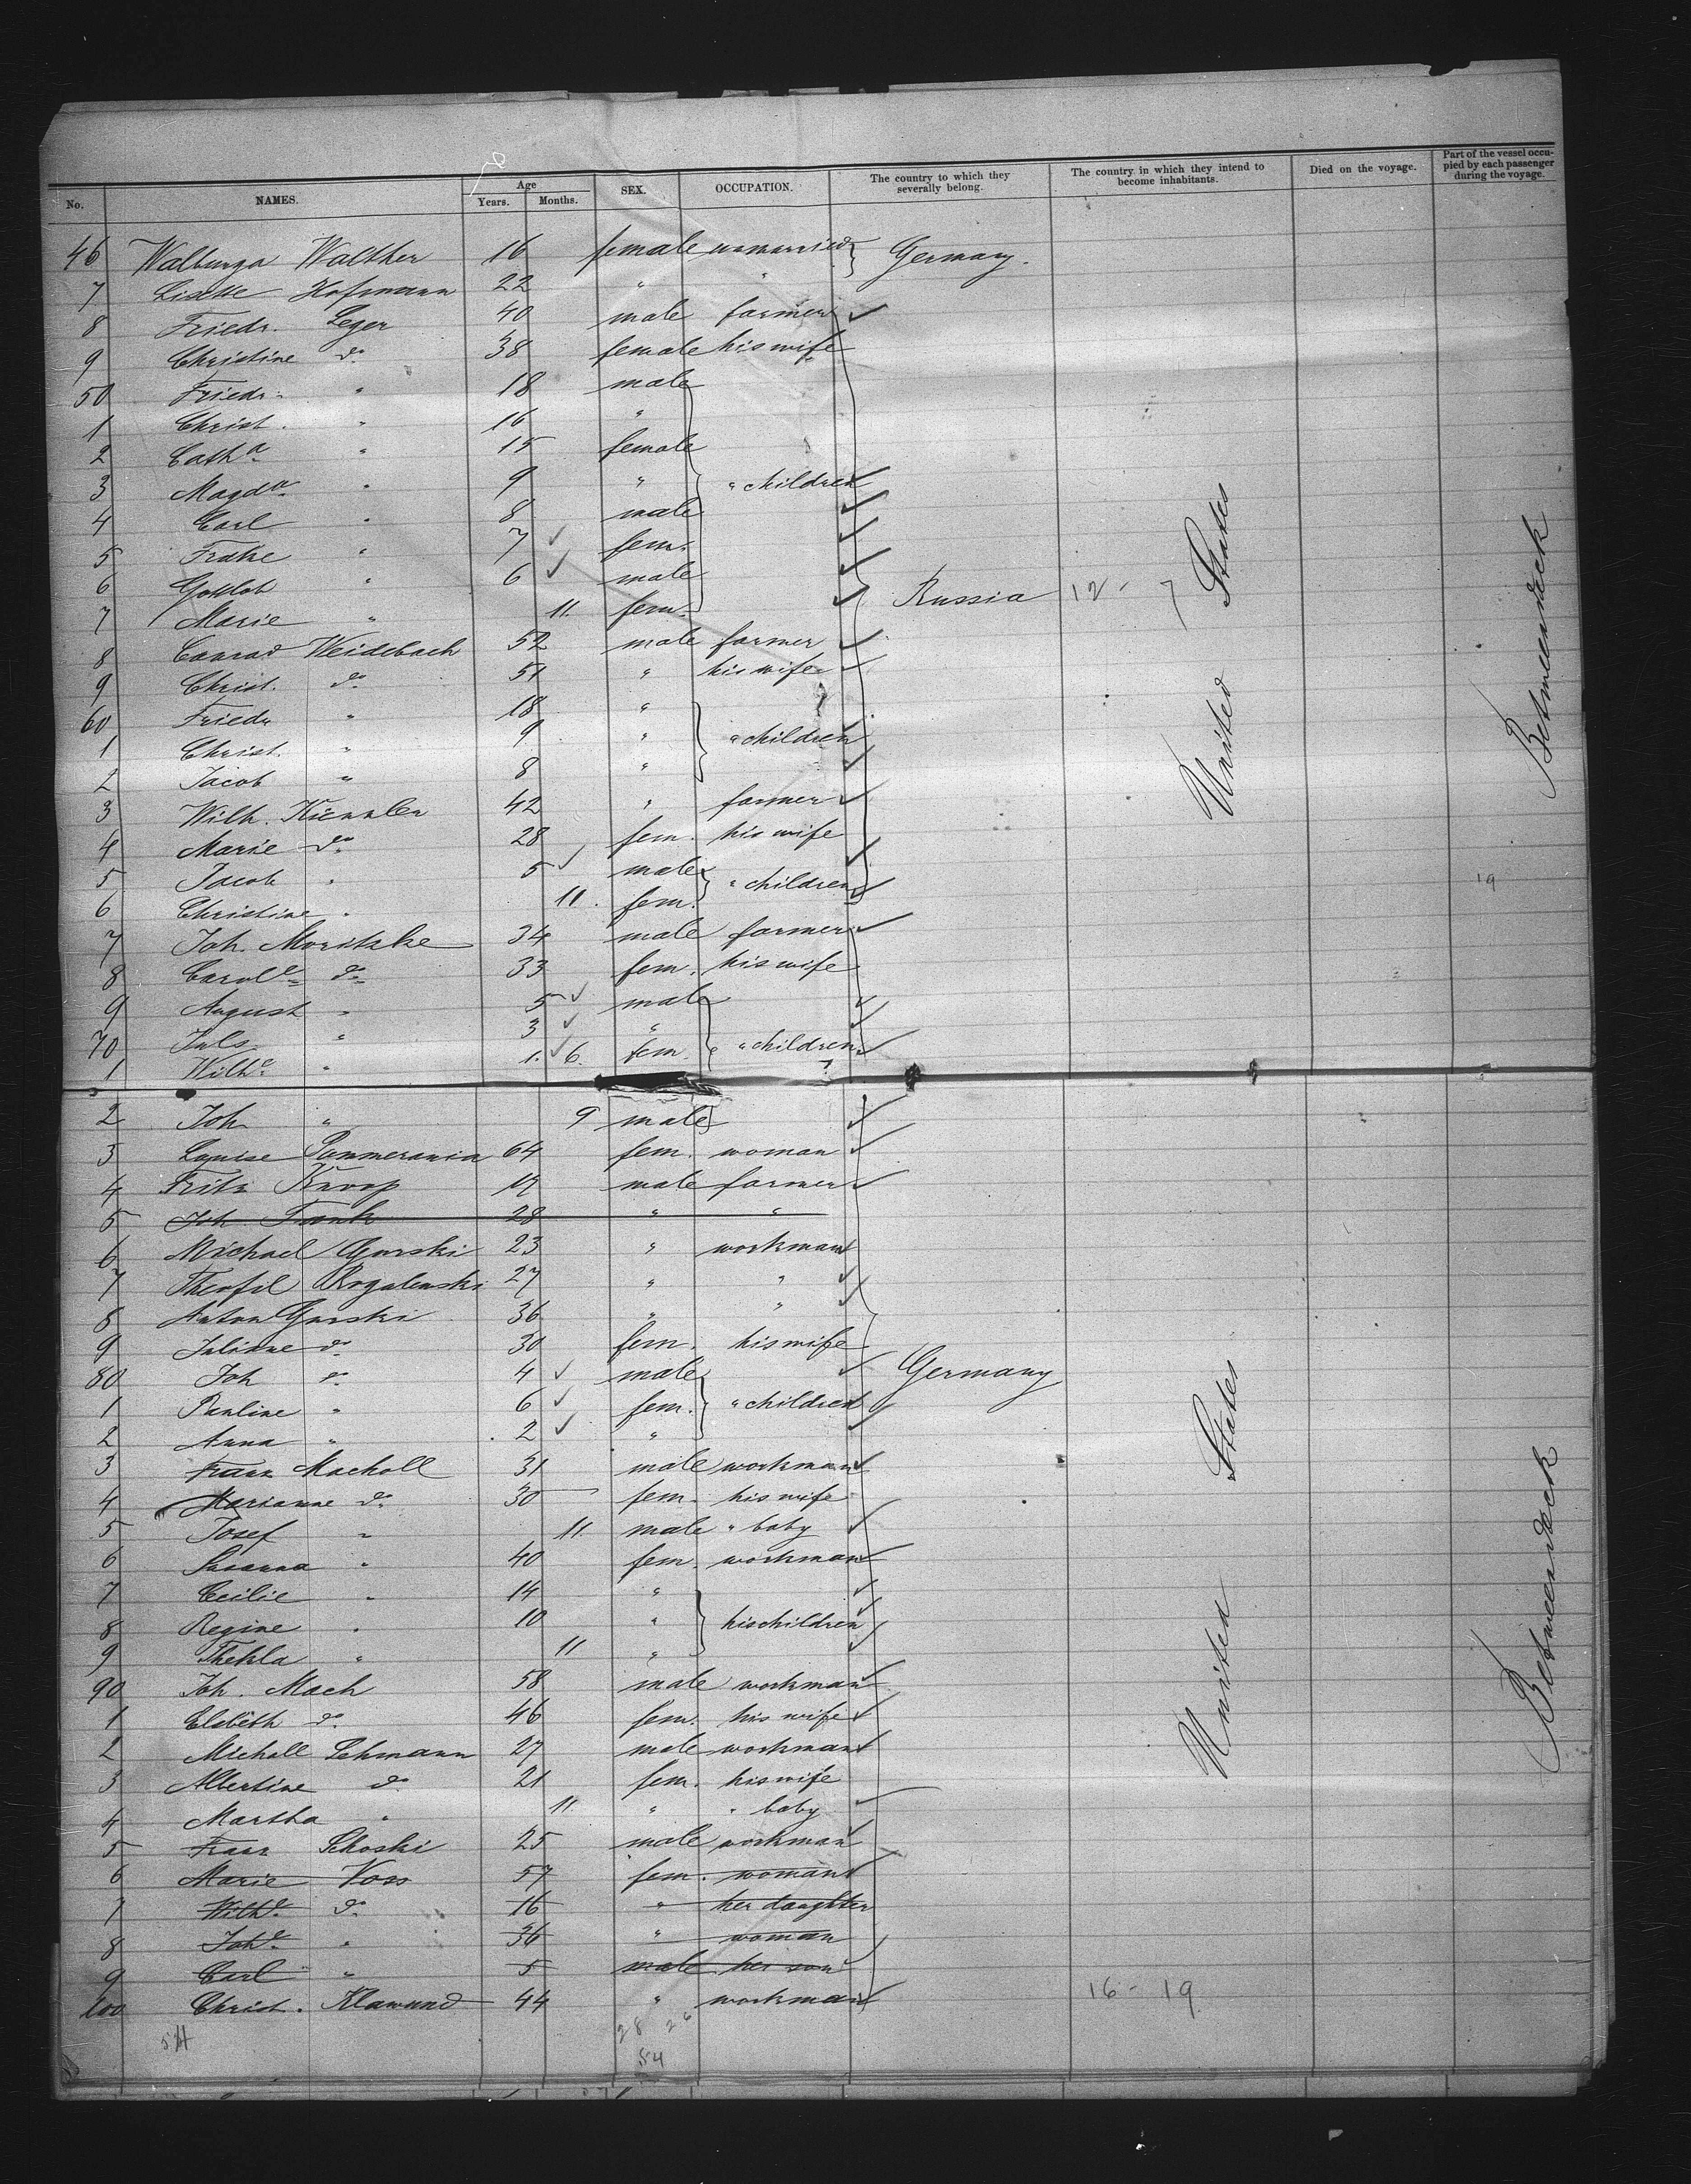 No. NAMES. Age Years. Months. SEX. OCCUPATION. The country to which they severally belong. The country in which they intend to become inhabitants. Died on the voyage. Part of the vessel occupied by each passenger during the voyage.
46 Walburga Walther 16 female unmarried Germany.
7 Lisette Hofmann 22 " "
8 Friedr. Leger 40 male farmer
9 Christine do 38 female his wife
50 Friedr. " 18 male
1 Christ. " 16 "
2 Catha " 15 female
3 Magda " 9 " " children
4 Carl " 8 male
5 Fridke " 7 fem.
6 Gottlob " 6 male
7 Marie " 11. fem. Russia 12 - 7 United States Betweendeck
8 Conrad Weidebach 52 male farmer
9 Christ. do 51 " his wife
60 Friedr " 18 "
1 Christ. " 9 " " children
2 Jacob " 8 "
3 Wilh. Kienzler 42 " farmer
4 Marie do 28 fem. his wife
5 Jacob " 5 male " children
6 Christine " 11. fem. 19
7 Joh. Moritzke 34 male farmer
8 Carole do 33 fem. his wife
9 August " 5 male
70 Juls. " 3 "
1 Wilhe " 1. 6. fem. " children
2 Joh " 9 male
3 Louise Pommerania 64 fem. woman
4 Fritz Knoop 19 male farmer
5 Joh Frank 28 " "
6 Michael Gurski 23 " workman
7 Theofil Rogalenski 27 " "
8 Anton Gurski 36 " "
9 Julianne do 30 fem. his wife
80 Joh do 4 male Germany
1 Pauline " 6 fem. " children
2 Anna " 2 "
3 Franz Macholl 31 male workman
4 Marianne do 30 fem. his wife
5 Josef " 11. male " baby
6 Susanna " 40 fem. workman
7 Cecilie " 14 "
8 Regine " 10 " his children
9 Thekla " 11 "
90 Joh. Mach 58 male workman United States Betweendeck
1 Elsbeth do 46 fem. his wife
2 Michall Lehmann 27 male workman
3 Albertine do 21 fem. his wife
4 Martha " 11. " " baby
5 Franz Schoski 25 male workman
6 Marie Voss 57 fem. woman
7 Wilhe do 16 " her daughter
8 Johe " 36 " woman
9 Carl " 5 male her son
100 Christ. Klawund 44 " workman 16 - 19
54 28 26
54